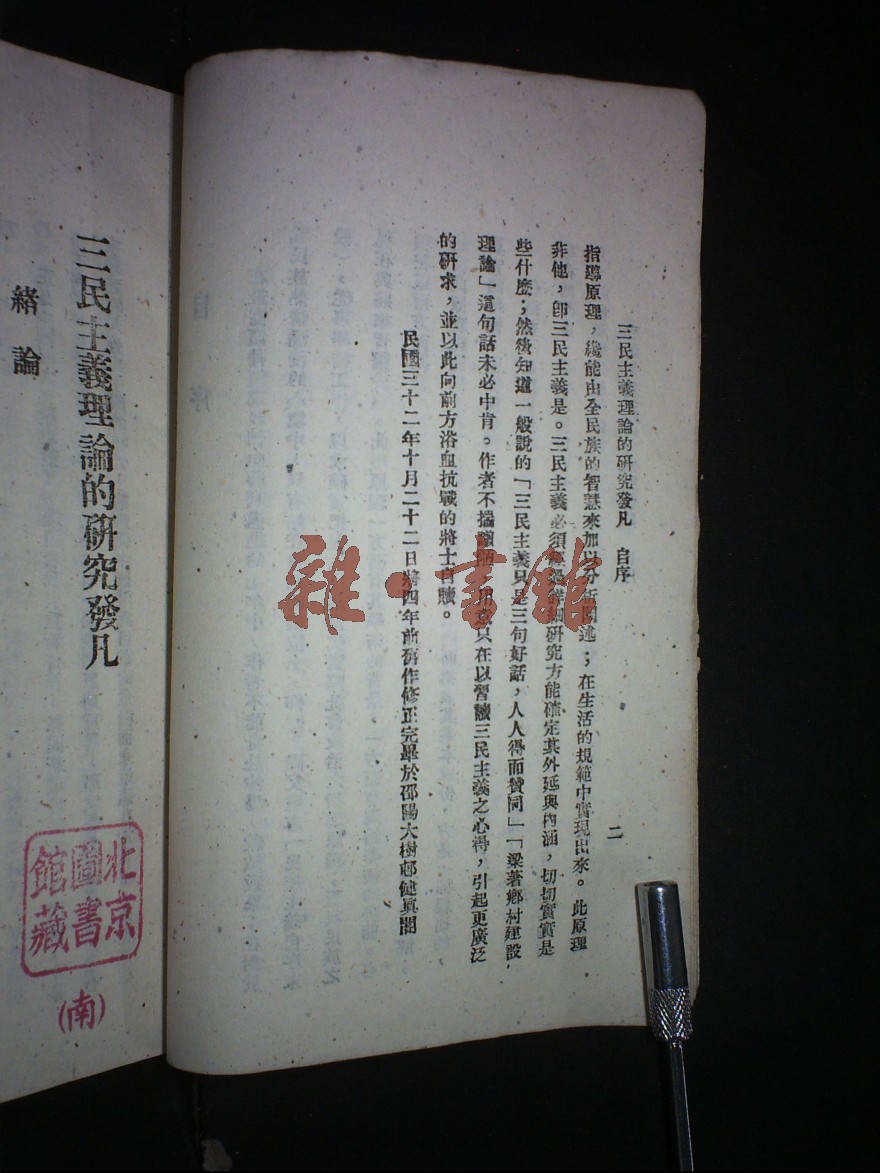 三民主義理論的研究發凡　自序
二
指導原理，纔能由全民族的智慧來加以分析闡述；在生活的規範中實現出來。此原理
非他，卽三民主義是。三民主義必須經過詳細研究方能確定其外延與內涵，切切實實是
些什麼；然後知道一般說的「三民主義只是三句好話，人人得而贊同」「梁著鄉村建設
理論」這句話未必中肯。作者不揣譾陋，用意只在以習讀三民主義之心得，引起更廣泛
的研求，並以此向前方浴血抗戰的將士自贖。
民國三十二年十月二十二日將四年前舊作修正完畢於邵陽大樹邨健眞閣
三民主義理論的研究發凡
緒論
北京
圖書
館藏
(南)
雜·書館